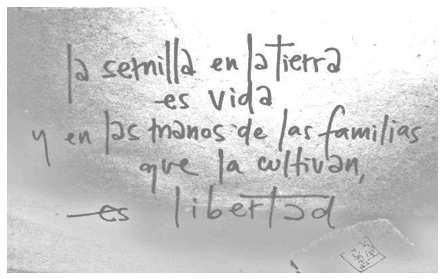 la semilla en la tierra
es vida
y en las manos de las familias
que la cultivan,
es libertad